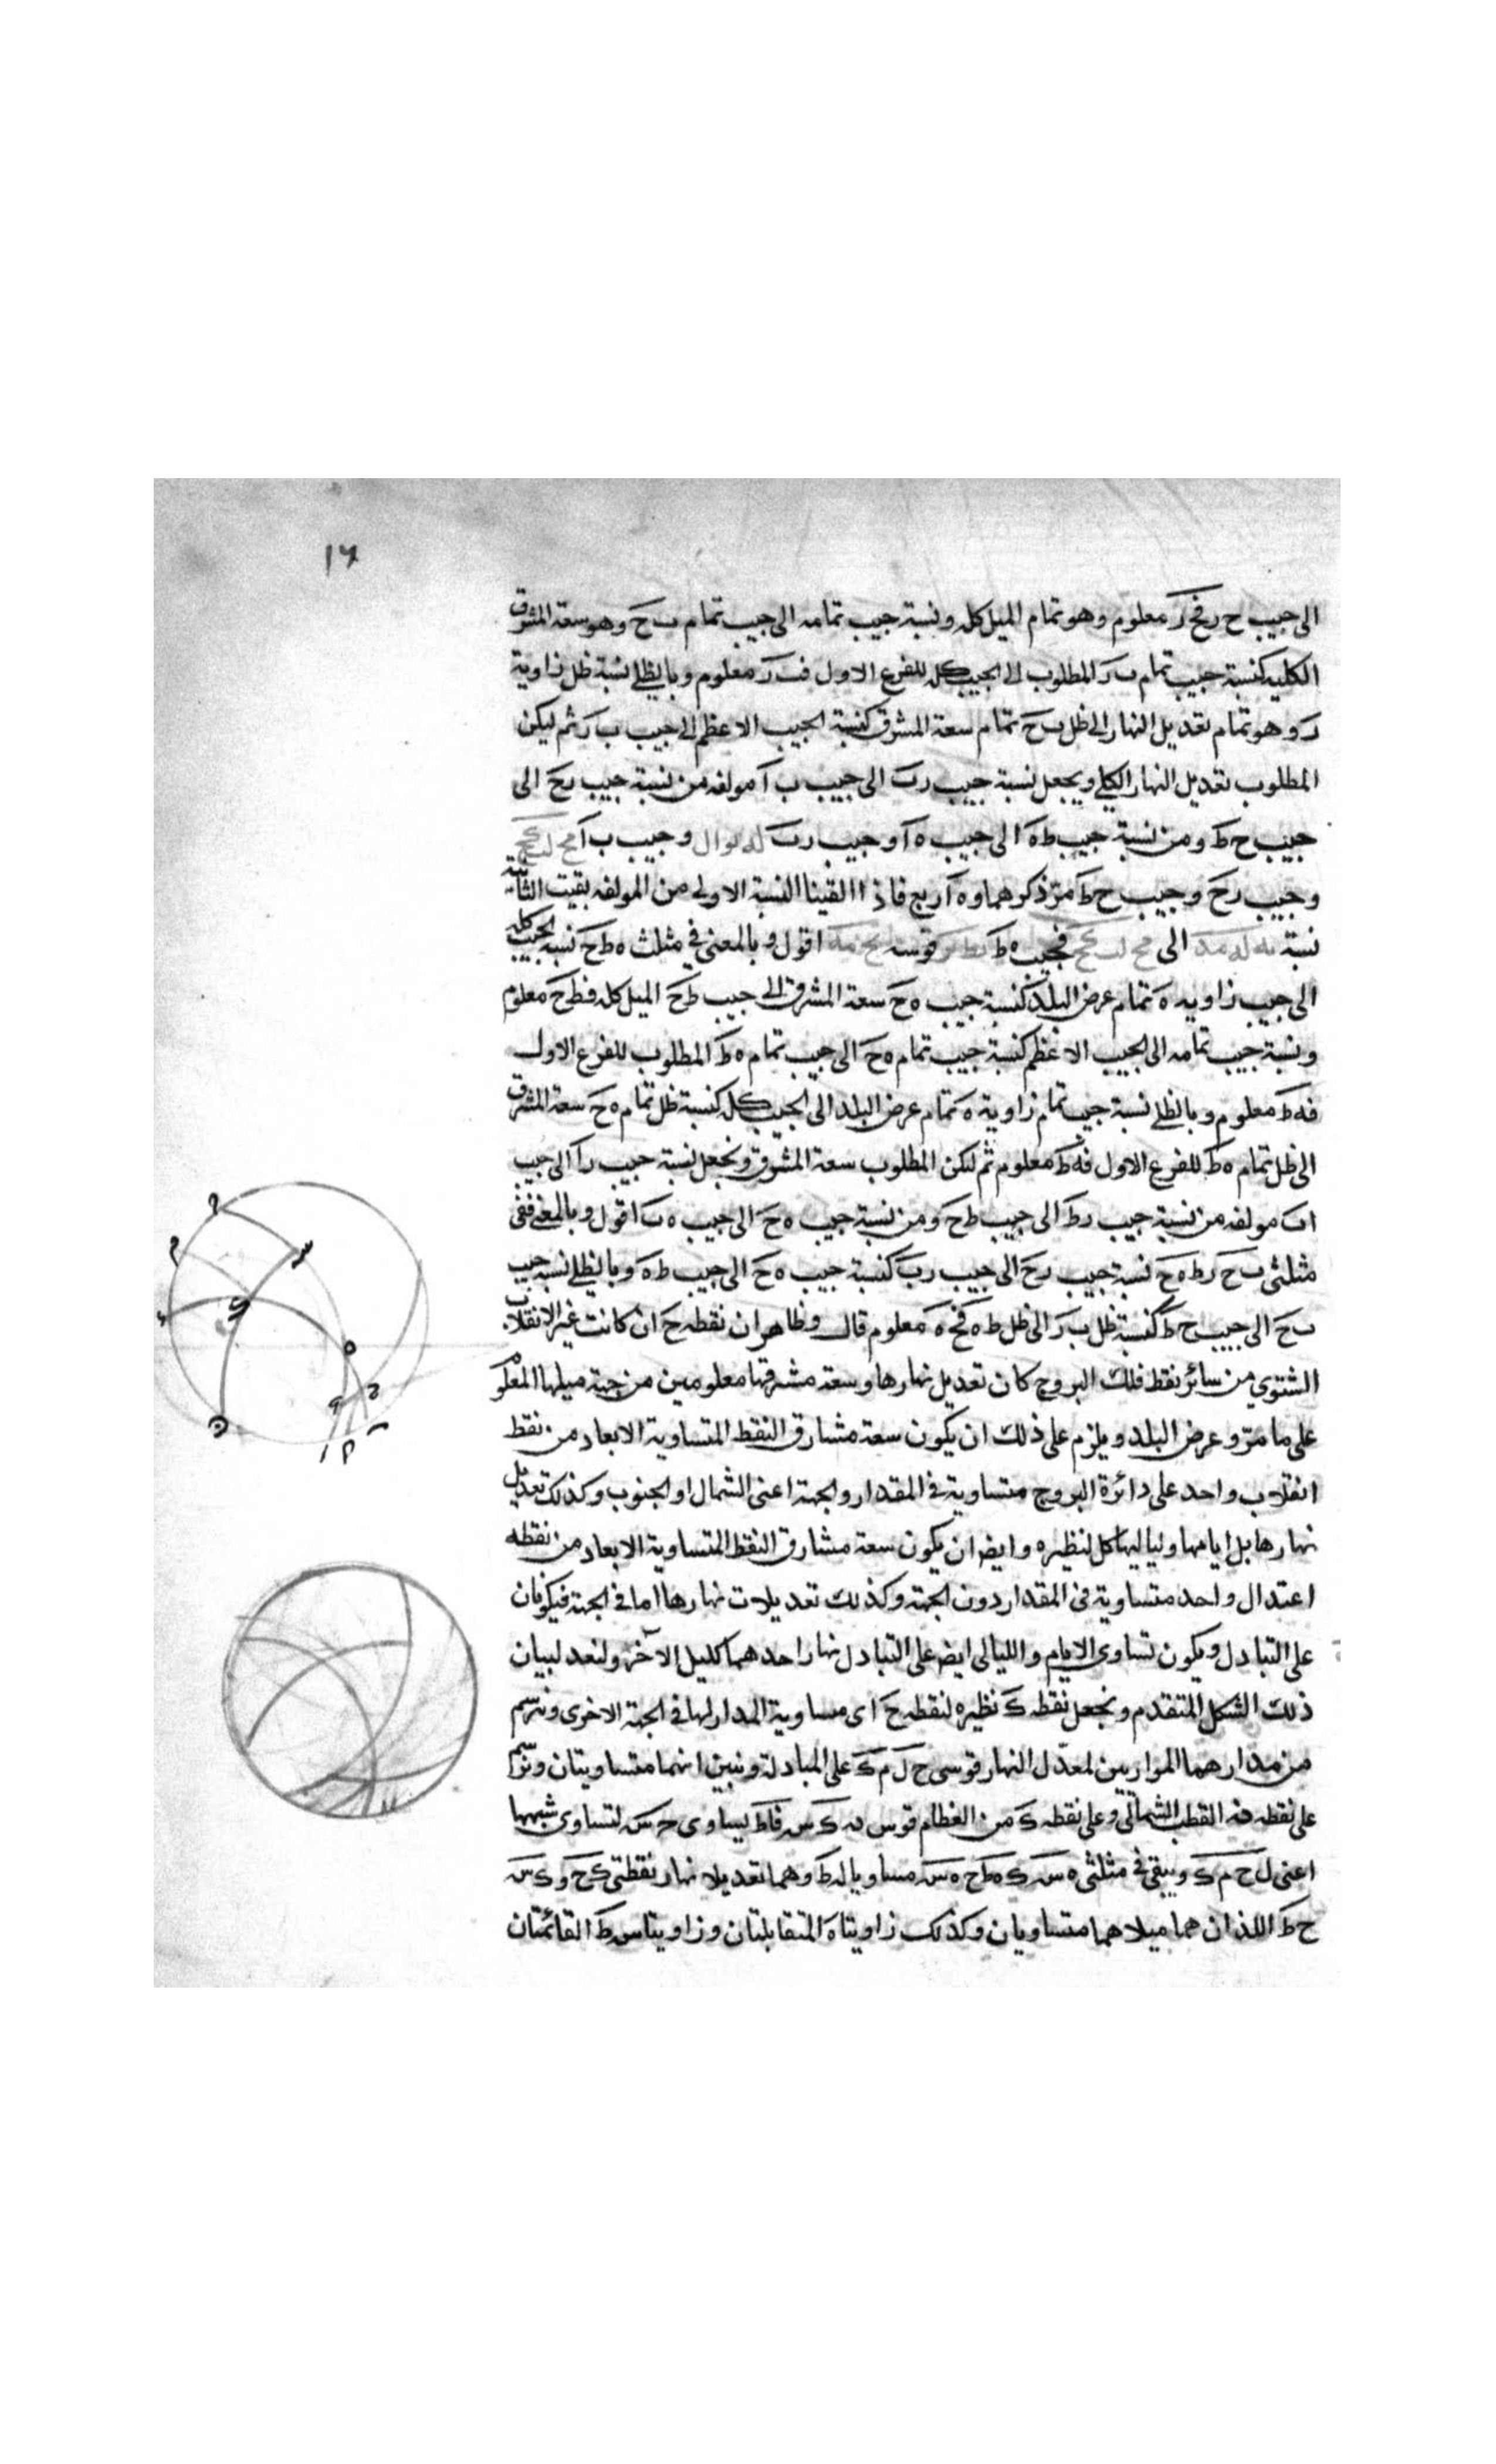 ١٦
الى جيب ح ر فح ر معلوم وهو تمام الميل كله ونسبة جيب تمامه الى جيب تمام ب ح وهو سعة المشرق
الكلية كنسبة جيب تمام ب ر المطلوب الى الجيب كله للفرع الاول فب ر معلوم وبالظلى نسبة ظل زاوية
ر وهو تمام تعديل النهار الى ظل ب ح تمام سعة المشرق كنسبة الجيب الاعظم الى جيب ب ر ثم ليكن
المطلوب تعديل النهار الكلى ويجعل نسبة جيب ر ب الى جيب ب آ مولفه من نسبة جيب ر ح الى
جيب ح ط ومن نسبة جيب ط ه الى جيب ه آ وجيب ر ب وجيب ب آ
وجيب ر ح وجيب ح ط مر ذكرهما وه آ ربع فاذا القينا النسبة الاولى من المولفه بقيت الثانية
نسبة الى فجيب ه ط قوسه اقول وبالمغنى فى مثلث ه ط ح نسبة الجيب كله
الى جيب زاوية ه تمام عرض البلد كنسبة جيب ه ح سعة المشرق الى جيب ط ح الميل كله فط ح معلوم
ونسبة جيب تمامه الى الجيب الاعظم كنسبة جيب تمام ه ح الى جيب تمام ه ط المطلوب للفرع الاول
فه ط معلوم وبالظلى نسبة جيب تمام زاوية ه تمام عرض البلد الى الجيب كله كنسبة ظل تمام ه ح سعة المشرق
الى ظل تمام ه ط للفرع الاول فه ط معلوم ثم لتكن المطلوب سعة المشرق ونجعل نسبة جيب ر آ الى جيب
ا ب مولفه من نسبة جيب ر ط الى جيب ط ح ومن نسبة جيب ه ح الى جيب ه ب اقول وبالمغنى ففى
مثلثى ب ح ر ط ه ح نسبة جيب ر ح الى جيب ر ب كنسبة جيب ه ح الى جيب ط ه وبالظلى نسبة جيب
ب ح الى جيب ح ط كنسبة ظل ب ر الى ظل ط ه فح ه معلوم قال وظاهر ان نقطه ح ان كانت غير الانقلاب
الشتوي من سائر نقط فلك البروج كان تعديل نهارها وسعة مشرقها معلومين من جهة ميلها المعلوم
على ما مر وعرض البلد ويلزم على ذلك ان يكون سعة مشارق النقط المتساوية الابعاد من نقط
انقلاب واحد على دائرة البروج متساوية فى المقدار والجهة اعنى الشمال او الجنوب وكذلك تعديل
نهارها بل ايامها ولياليها كل لنظيره وايضا ان يكون سعة مشارق النقط المتساوية الابعاد من نقطه
اعتدال واحد متساوية فى المقدار دون الجهة وكذلك تعديلات نهارها اما فى الجهة فيكونان
على التبادل ويكون تساوى الايام والليالى ايض على التبادل نهار احدهما كليل الآخر ولنعد لبيان
ذلك الشكل المتقدم ونجعل نقطه ك نظيره لنقطه ح اى مساوية المدار لها فى الجهة الاخرى ونرسم
من مدارهما الموازيين لمعدل النهار قوسى ح ل م ك على المبادلة ونبين انهما متساويتان ونرسم
على نقطه القطب الشمالى وعلى نقطه ك من العظام قوس ك س فاط يساوى س لتساوى شبهها
اعنى ل ح م ك ويبقى فى مثلثى ه س ك ه ط ح ه س مساويا له ط وهما تعديلا نهار نقطتى ك ح وك س
ح ط اللذان هما ميلاهما متساويان وكذلك زاويتا ه المتقابلتان وزاويتا س ط القائمتان